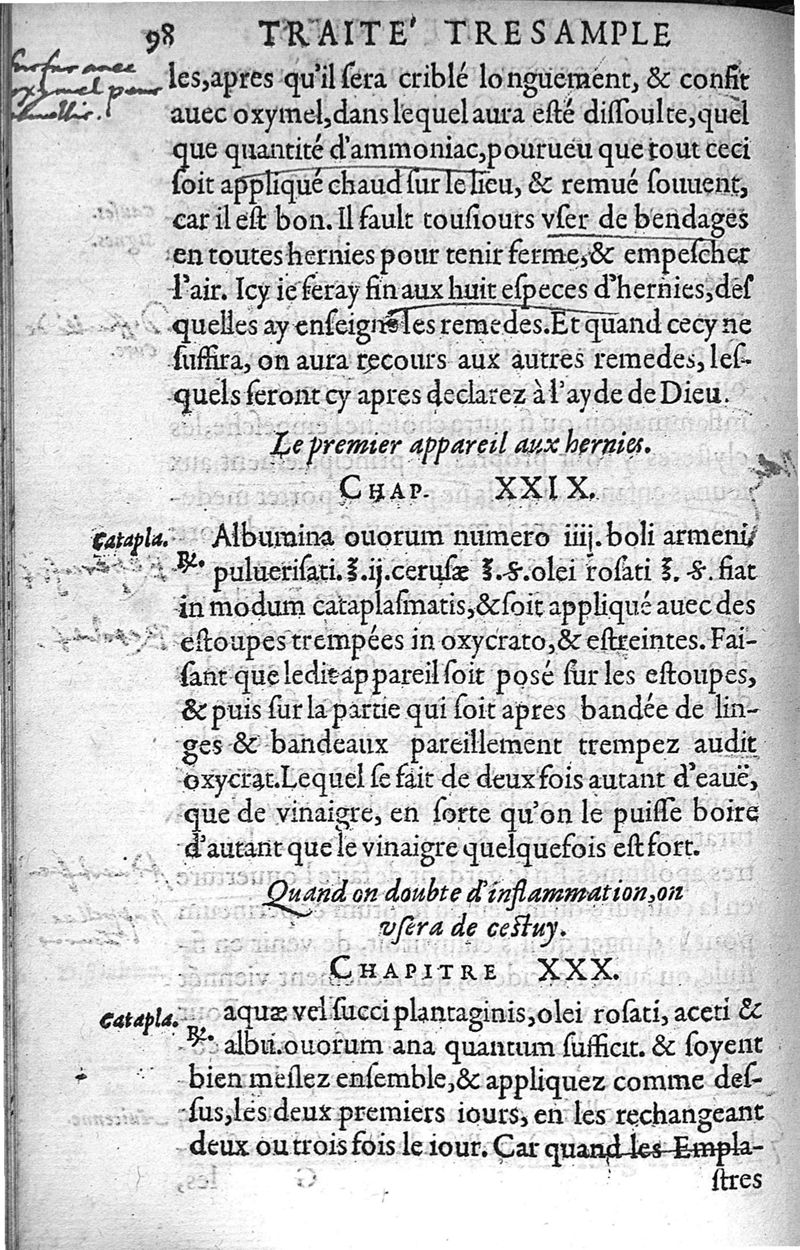 98 TRAITE' TRESAMPLE
les, apres qu'il ſera criblé longuement, & confit
auec oxymel, dans lequel aura eſté diſſoulte, quel
que quantité d'ammoniac, pourueu que tout ceci
ſoit appliqué chaud ſur le lieu, & remué ſouuent,
car il eſt bon. Il fault touſiours vſer de bendages
en toutes hernies pour tenir ferme, & empeſcher
l'air. Icy ie feray fin aux huit eſpeces d'hernies, deſ
quelles ay enſeigné les remedes. Et quand cecy ne
ſuffira, on aura recours aux autres remedes, leſ-
quels ſeront cy apres declarez à l'ayde de Dieu.
Le premier appareil aux hernies.
CHAP. XXIX.
Catapla.
℞. Albumina ouorum numero iiij. boli armeni,
puluerisati. ℥. ij. ceruſæ ℥. ß. olei roſati ℥. ß. fiat
in modum cataplaſmatis, & ſoit appliqué auec des
eſtoupes trempées in oxycrato, & eſtreintes. Fai-
ſant que ledit appareil ſoit poſé ſur les eſtoupes,
& puis ſur la partie qui ſoit apres bandée de lin-
ges & bandeaux pareillement trempez audit
oxycrat. Lequel ſe fait de deux fois autant d'eauë,
que de vinaigre, en ſorte qu'on le puiſſe boire
d'autant que le vinaigre quelquefois eſt fort.
Quand on doubte d'inflammation, on
vſera de ceſtuy.
CHAPITRE XXX.
Catapla.
℞. aquæ vel ſucci plantaginis, olei roſati, aceti &
albū. ouorum ana quantum ſufficit. & ſoyent
bien meſlez enſemble, & appliquez comme deſ-
ſus, les deux premiers iours, en les rechangeant
deux ou trois fois le iour. Car quand les Empla-
ſtres